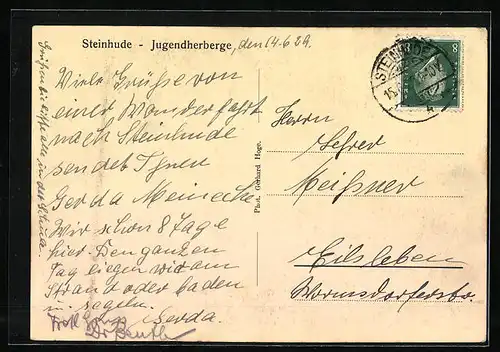 Steinhude - Jugendherberge, den 14.6.29.
Viele Grüße von
einer Wanderfahrt
nach Steinhude
sendet Ihnen
Gerda Meinecke
Wir schon 8 Tage
hier. Den ganzen
Tag liegen wir am
Strand oder baden
u. segeln.
Gerda.
Grüßen Sie bitte alle in der Schule.
Phot. Gerhard Hoge.
STEINHUDE
8
Herrn
Lehrer
Meißner
Eilsleben
Wormsdorferstr.